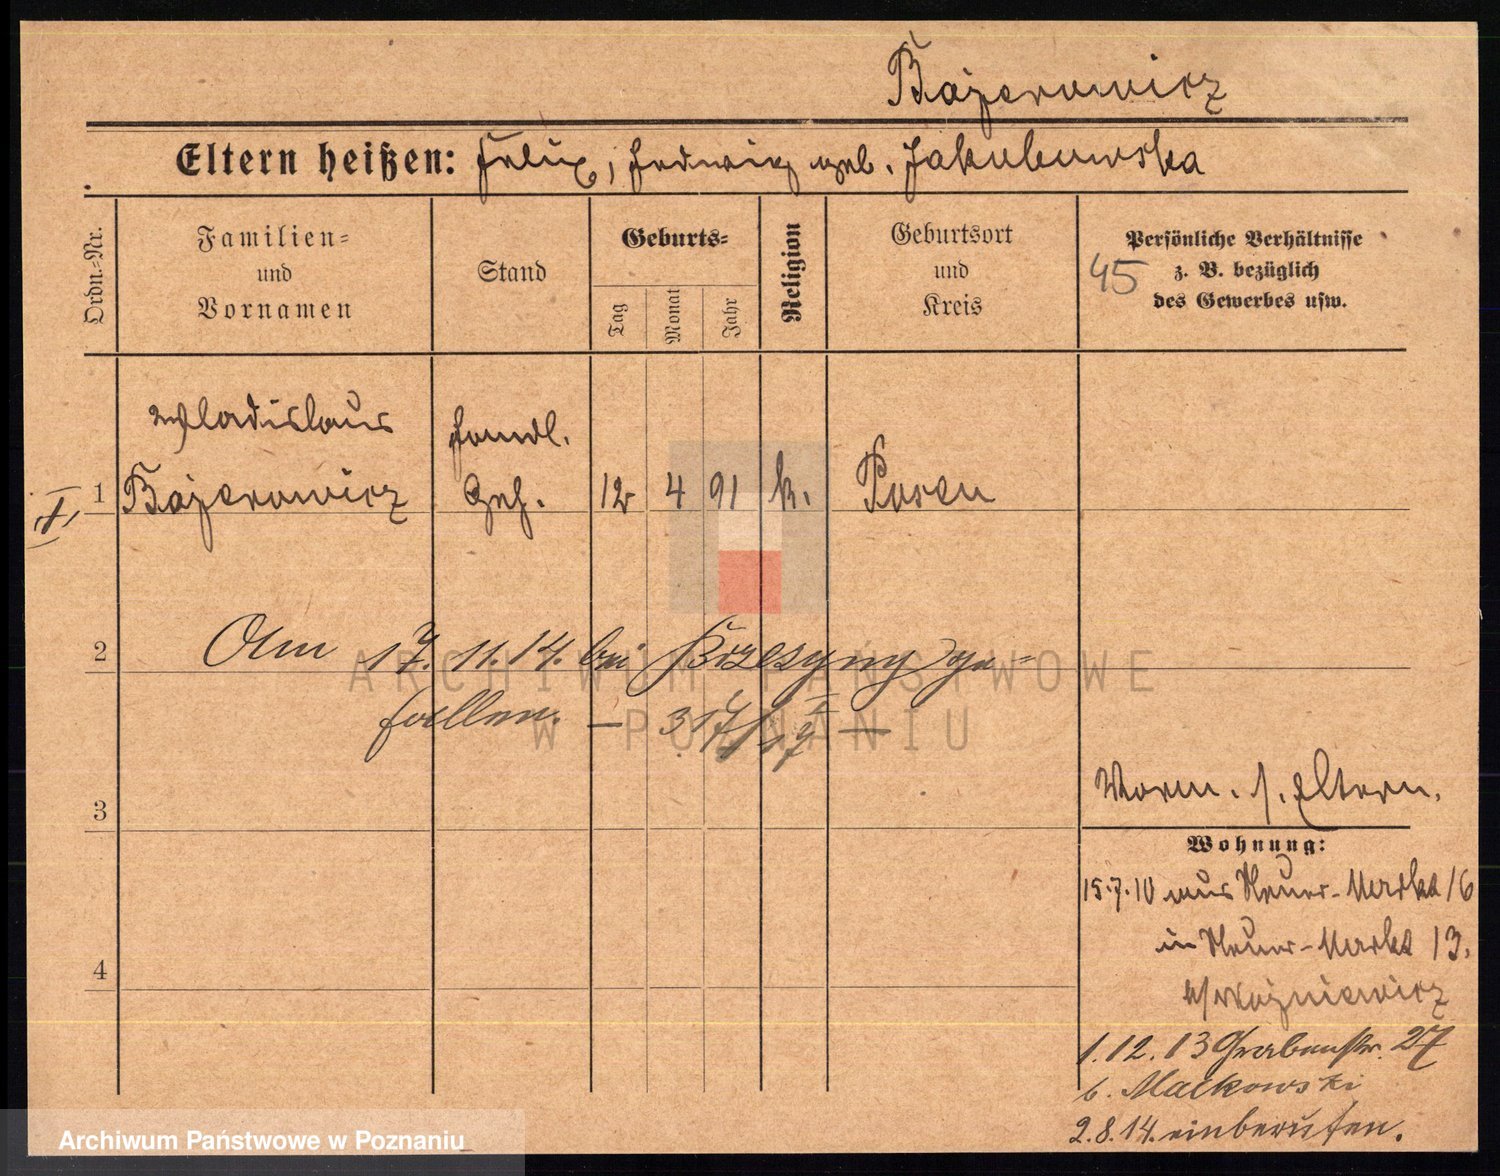 Bajerowicz
Eltern heißen: Felix, Hedwig geb. Jakubowska
Ordn.-Nr.
Familien-
und
Vornamen
Stand
Geburts-
Tag
Monat
Jahr
Religion
Geburtsort
und
Kreis
Persönliche Verhältnisse
z. B. bezüglich
des Gewerbes usw.
45
Wladislaus
Bajerowicz
Handl.
Geh.
1
12 4 91 k. Posen
2
Am 17. 11. 14. bei Brzesyny ge-
fallen. — 317/17 —
3
Vorm. s. Eltern.
Wohnung:
15.7.10 aus Neuer-Markt 16
in Neuer-Markt 13.
b/Wozniewicz
4
1.12.13 Grabenstr. 27
b. Malkowski
2.8.14. einberufen.
ARCHIWUM PAŃSTWOWE
W POZNANIU
Archiwum Państwowe w Poznaniu